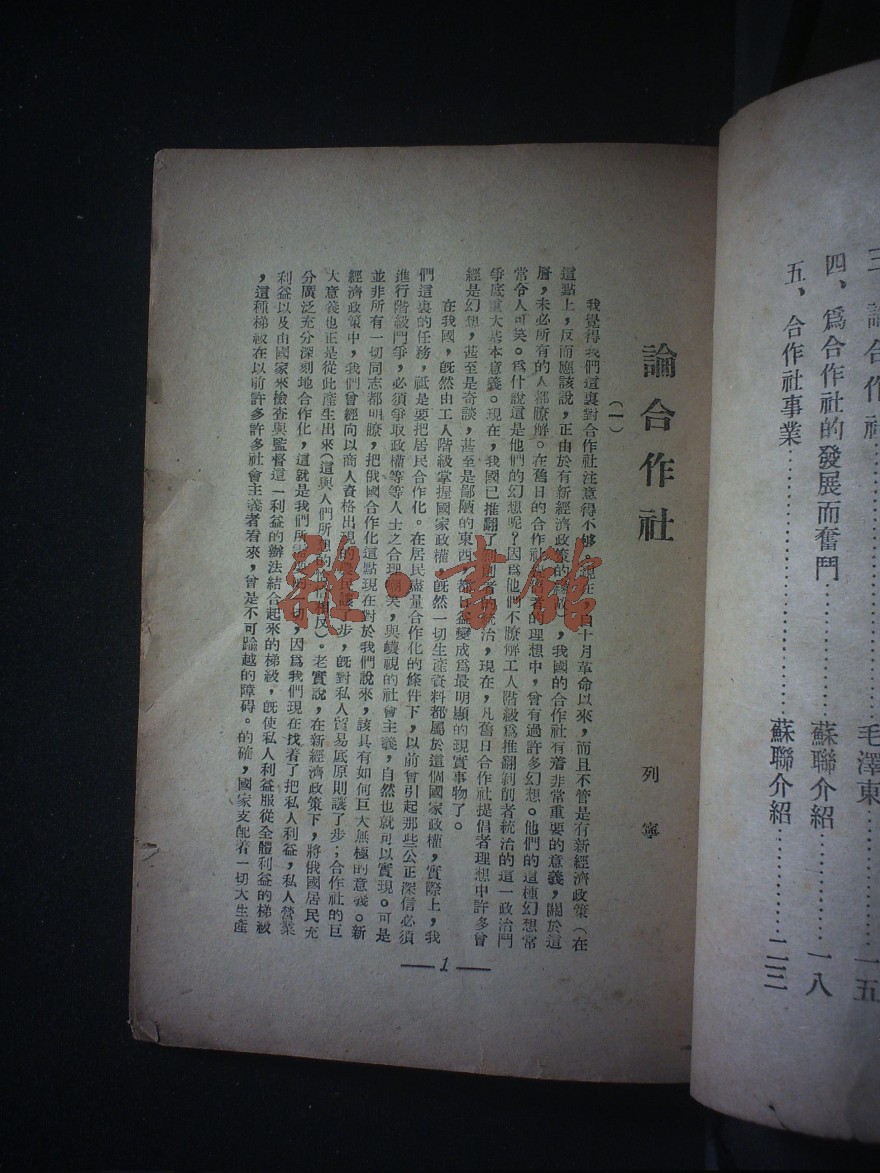 三、論合作社……………毛澤東…………一五
四、爲合作社的發展而奮鬥……………蘇聯介紹…………一八
五、合作社事業……………蘇聯介紹…………二二
論合作社
列寧
(一)
我覺得我們這裏對合作社注意得不够。現在自十月革命以來,而且不管是有新經濟政策(在
這點上,反而應該說,正由於有新經濟政策的緣故),我國的合作社有着非常重要的意義,關於這
層,未必所有的人都瞭解。在舊日的合作社 者的理想中,曾有過許多幻想。他們的這種幻想常
常令人可笑。爲什說這是他們的幻想呢?因爲他們不瞭解工人階級爲推翻剝削者統治的這一政治鬥
爭底重大基本意義。現在,我國已推翻了 削者的統治,現在,凡舊日合作社提倡者理想中許多曾
經是幻想,甚至是奇談,甚至是鄙陋的東西,都 益變成爲最明顯的現實事物了。
在我國,旣然由工人階級掌握國家政權,旣然一切生產資料都屬於這個國家政權,實際上,我
們這裏的任務,祗是要把居民合作化。在居民盡量合作化的條件下,以前會引起那些公正深信必須
進行階級鬥爭,必須爭取政權等等人士之合理 笑,與 視的社會主義,自然也就可以實現。可是
並非所有一切同志都明瞭,把俄國合作化這點現在對於我們說來,該具有如何巨大無極的意義。新
經濟政策中,我們曾經向以商人資格出現的 民讓 步,旣對私人貿易底原則讓了步;合作社的巨
大意義也正是從此產生出來(這與人們所想的 相反)。老實說,在新經濟政策下,將俄國居民充
分廣泛充分深刻地合作化,這就是我們所需要的一切,因爲我們現在找着了把私人利益,私人營業
利益以及由國家來檢查與監督這一利益的辦法結合起來的梯級,旣使私人利益服從全體利益的梯級
,這種梯級在以前許多許多社會主義者看來,曾是不可踰越的障碍。的確,國家支配着一切大生產
—1—
雜·書館